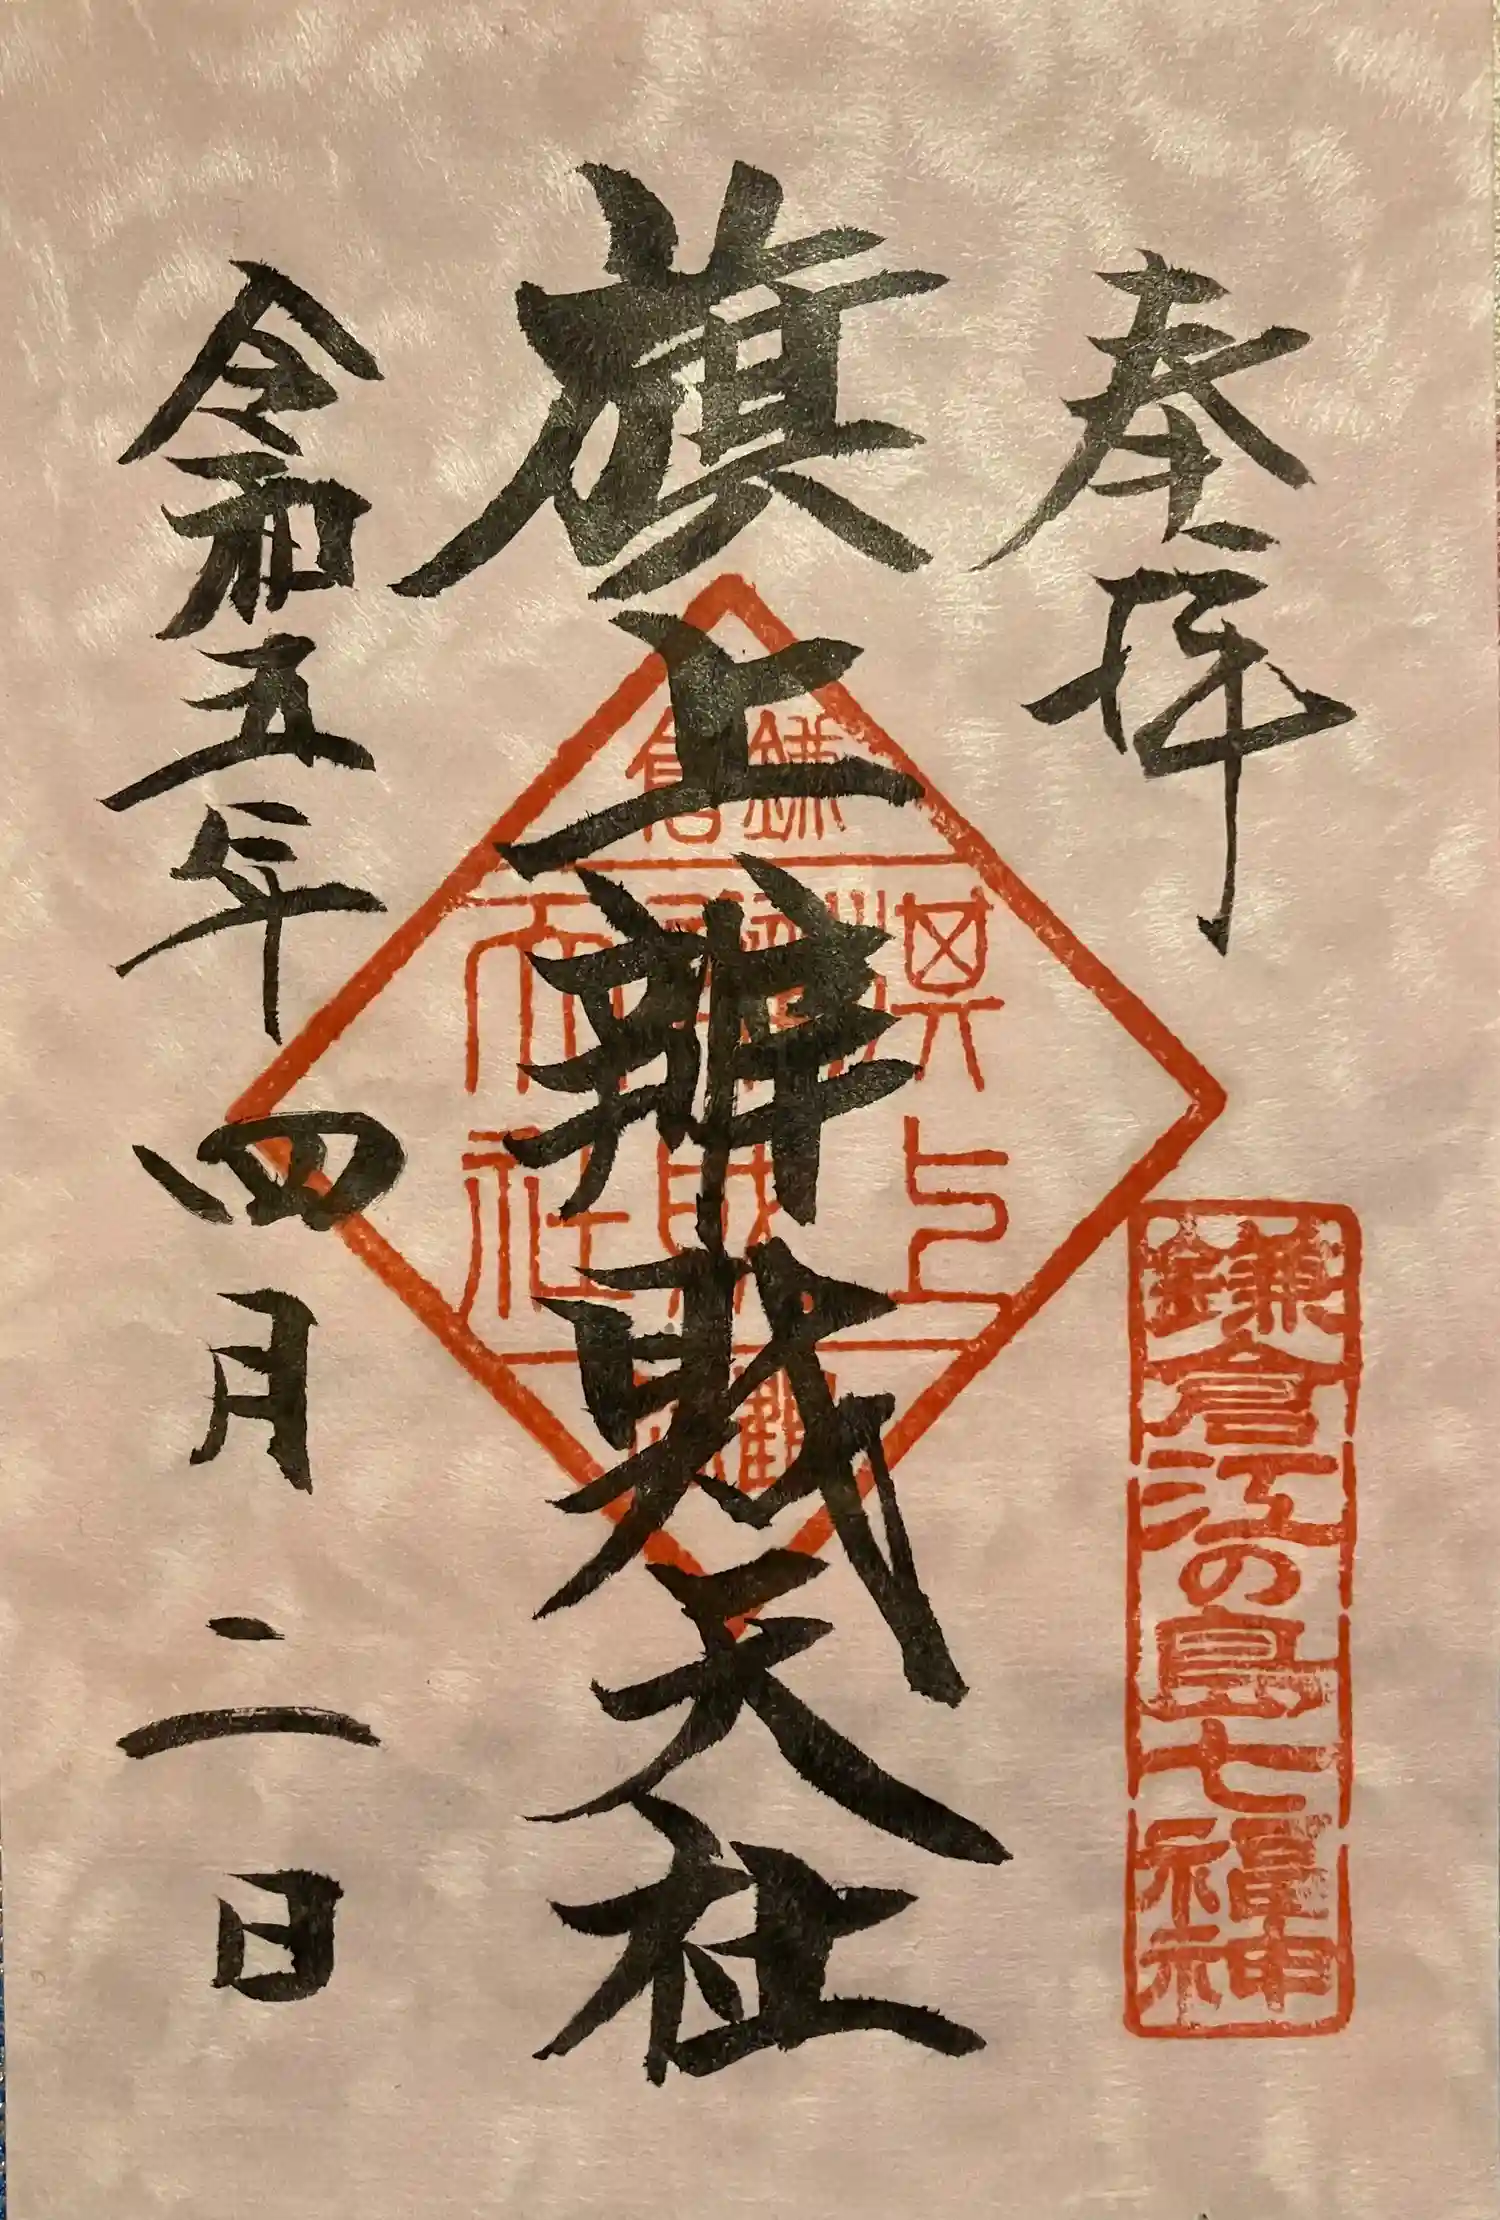 奉拝
鎌倉江の島七福神
旗上辨財天社
鎌倉
令和五年四月二日